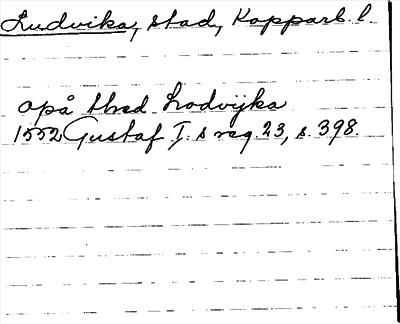 Ludvika, stad, Kopparb. l.
opå thed Lodvijka
1552 Gustaf I:s reg 23, s. 398.